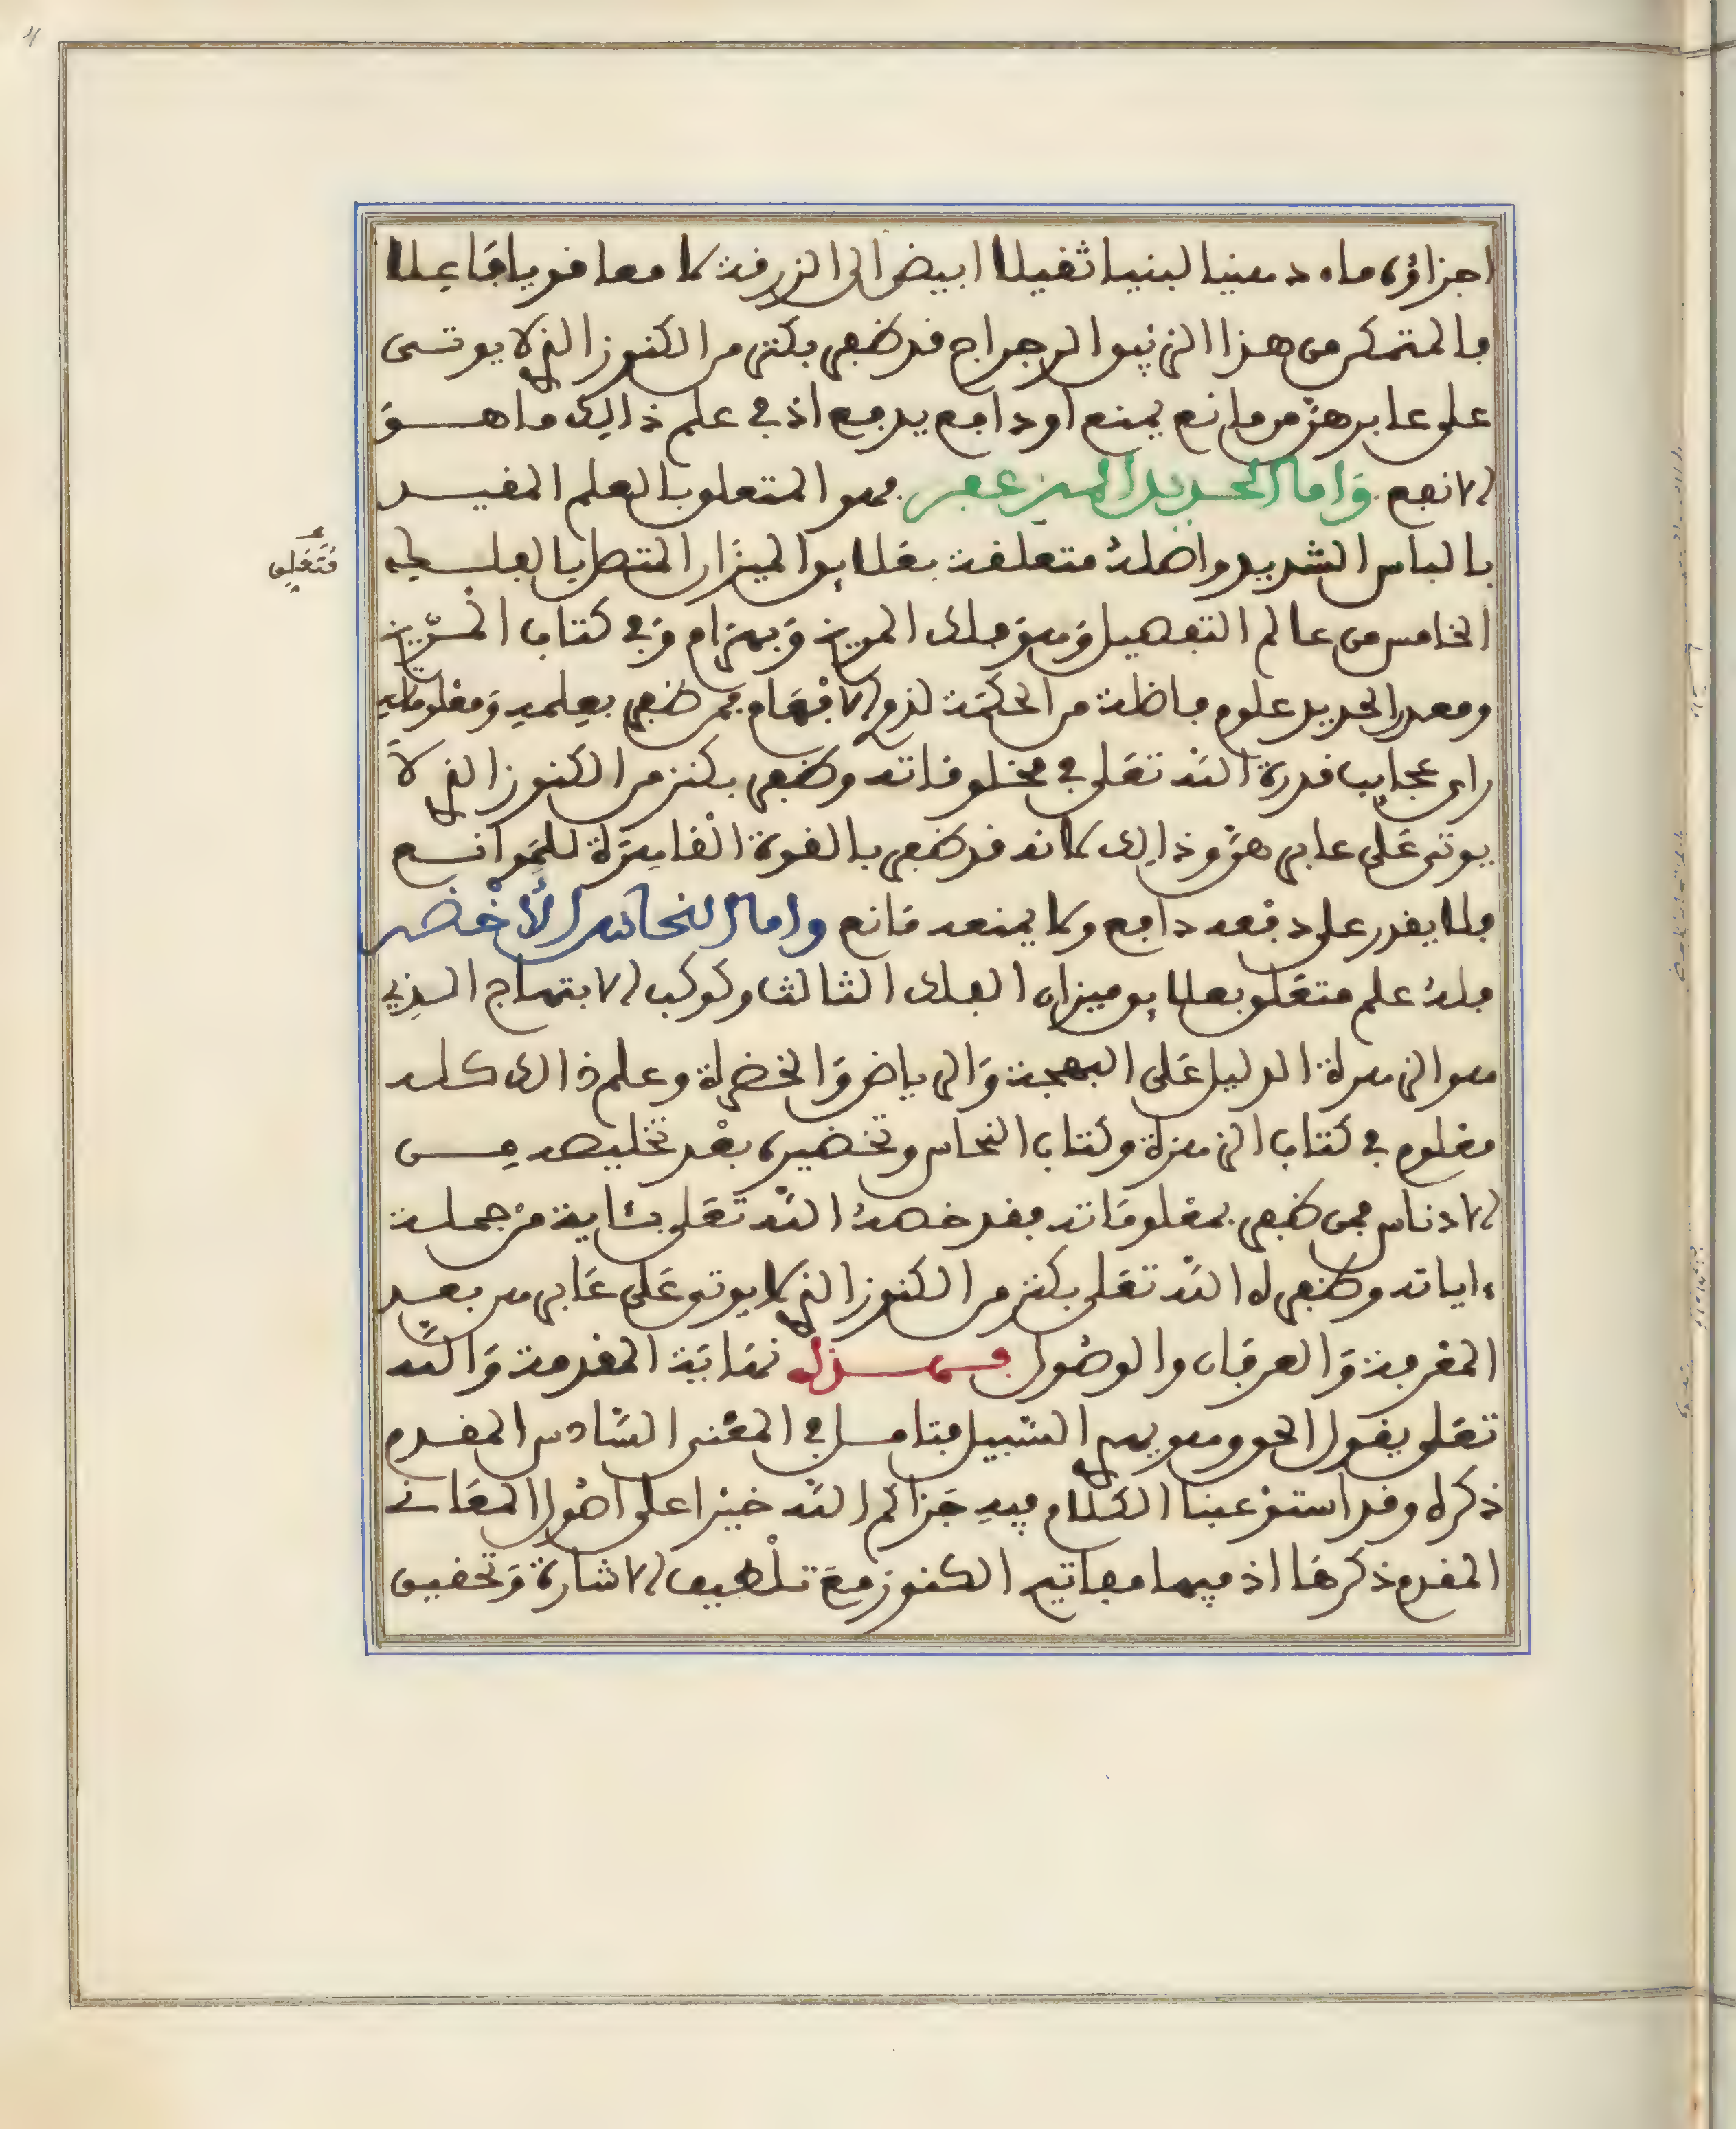 اجزاؤه ماء دهنيا لبنيا ثقيلا ابيض الى الزرقة لامعا قويا فاعلا
فالمتمكن من هذا الزئبق الرجراج قد ظفر بكنز من الكنوز الذي لا يوتى
على عابرهز من مانع يمنع او دافع يدفع اذ في علم ذالك ما هو
الانفع واما الحديد المزعفر فهو المتعلق بالعلم المفيد
بالباس الشديد واصله متعلقة بعلايق الميزان المتصل بالفلك
الخامس من عالم التفصيل وهو فلك المريخ وبهرام وفي كتاب المريخ
ومعدن الحديد علوم فاضلة من الحكمة لذوي الافهام فمن ظفر بعلمه ومعلوماته
راى عجايب قدرة الله تعلى في مخلوقاته وظفر بكنز من الكنوز الذي لا
يوتى على عابرهز وذالك لانه قد ظفر بالقوة القاهرة للموانع
فلا يقدر على دفعه دافع ولا يمنعه مانع واما النحاس الأخضر
فله علم متعلق بعلايق ميزان الفلك الثالث وكوكب الابتهاج الذي
هو الزهرة الدليل على البهجة والرياض والخضرة وعلم ذالك كله
معلوم في كتاب الزهرة وكتاب النحاس وتخضيره بعد تخليصه من
الادناس فمن ظفر بمعلوماته فقد خصه الله تعلى بئاية من جملة
ءاياته وظفر له الله تعلى بكنز من الكنوز الذي لا يوتى على عابرهز بعد
المعرفة والعرفان والوصول فهذه نهاية المقدمة والله
تعلى يقول الحق وهو يهدي السبيل فتامل في المعنى السادس المقدم
ذكره وقد استوعبنا الكلام فيه جزاكم الله خيرا على اصول المعاني
المقدم ذكرها اذ فيها مفاتيح الكنوز مع تلطيف الاشارة وتحقيق